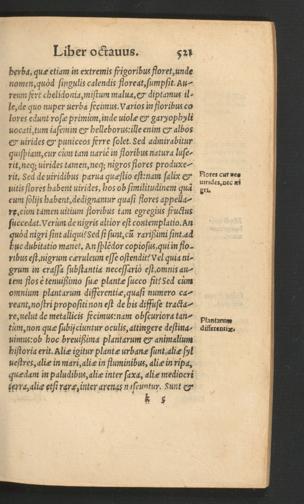 Liber octauus. 521
herba, quæ etiam in extremis frigoribus floret, unde
nomen, quòd singulis calendis floreat, sumpsit. Au-
reum fert chelidonia, mistum malua, & diptanus il-
le, de quo nuper uerba fecimus. Varios in floribus co
lores edunt rosæ primùm, inde uiolæ & garyophyli
uocati, tum iasemin & helleborus: ille enim & albos
& uirides & puniceos ferre solet. Sed admirabitur
quispiam, cur cùm tam uariè in floribus natura luse-
rit, neq; uirides tamen, neq; nigros flores produxe-
rit. Sed de uiridibus parua quæstio est: nam salix &
uitis flores habent uirides, hos ob similitudinem quã
cum folijs habent, dedignantur quasi flores appella-
re, cùm tamen uitium floribus tam egregius fructus
succedat. Verùm de nigris altior est contemplatio. An
quòd nigri sint aliqui? Sed si sunt, cũ rarissimi sint ad
huc dubitatio manet. An splẽdor copiosus, qui in flo-
ribus est, nigrum cæruleum esse ostendit? Vel quia ni-
grum in crassa substantia necessariò est, omnis au-
tem flos è tenuissimo suæ plantæ succo fit? Sed cùm
omnium plantarum differentiæ, quasi numero ca-
reant, nostri propositi non est de his diffuse tracta-
re, uelut de metallicis fecimus: nam obscuriora tan-
tùm, non quæ subijciuntur oculis, attingere destina-
uimus: ob hoc breuissima plantarum & animalium
historia erit. Aliæ igitur plantæ urbanæ sunt, aliæ syl
uestres, aliæ in mari, aliæ in fluminibus, aliæ in ripa,
quædam in paludibus, aliæ inter saxa, aliæ mediocri
terra, aliæ etsi raræ, inter arenas nascuntur. Sunt &
k 5
Flores cur non
uirides, nec ni
gri.
Plantarum
differentiæ.